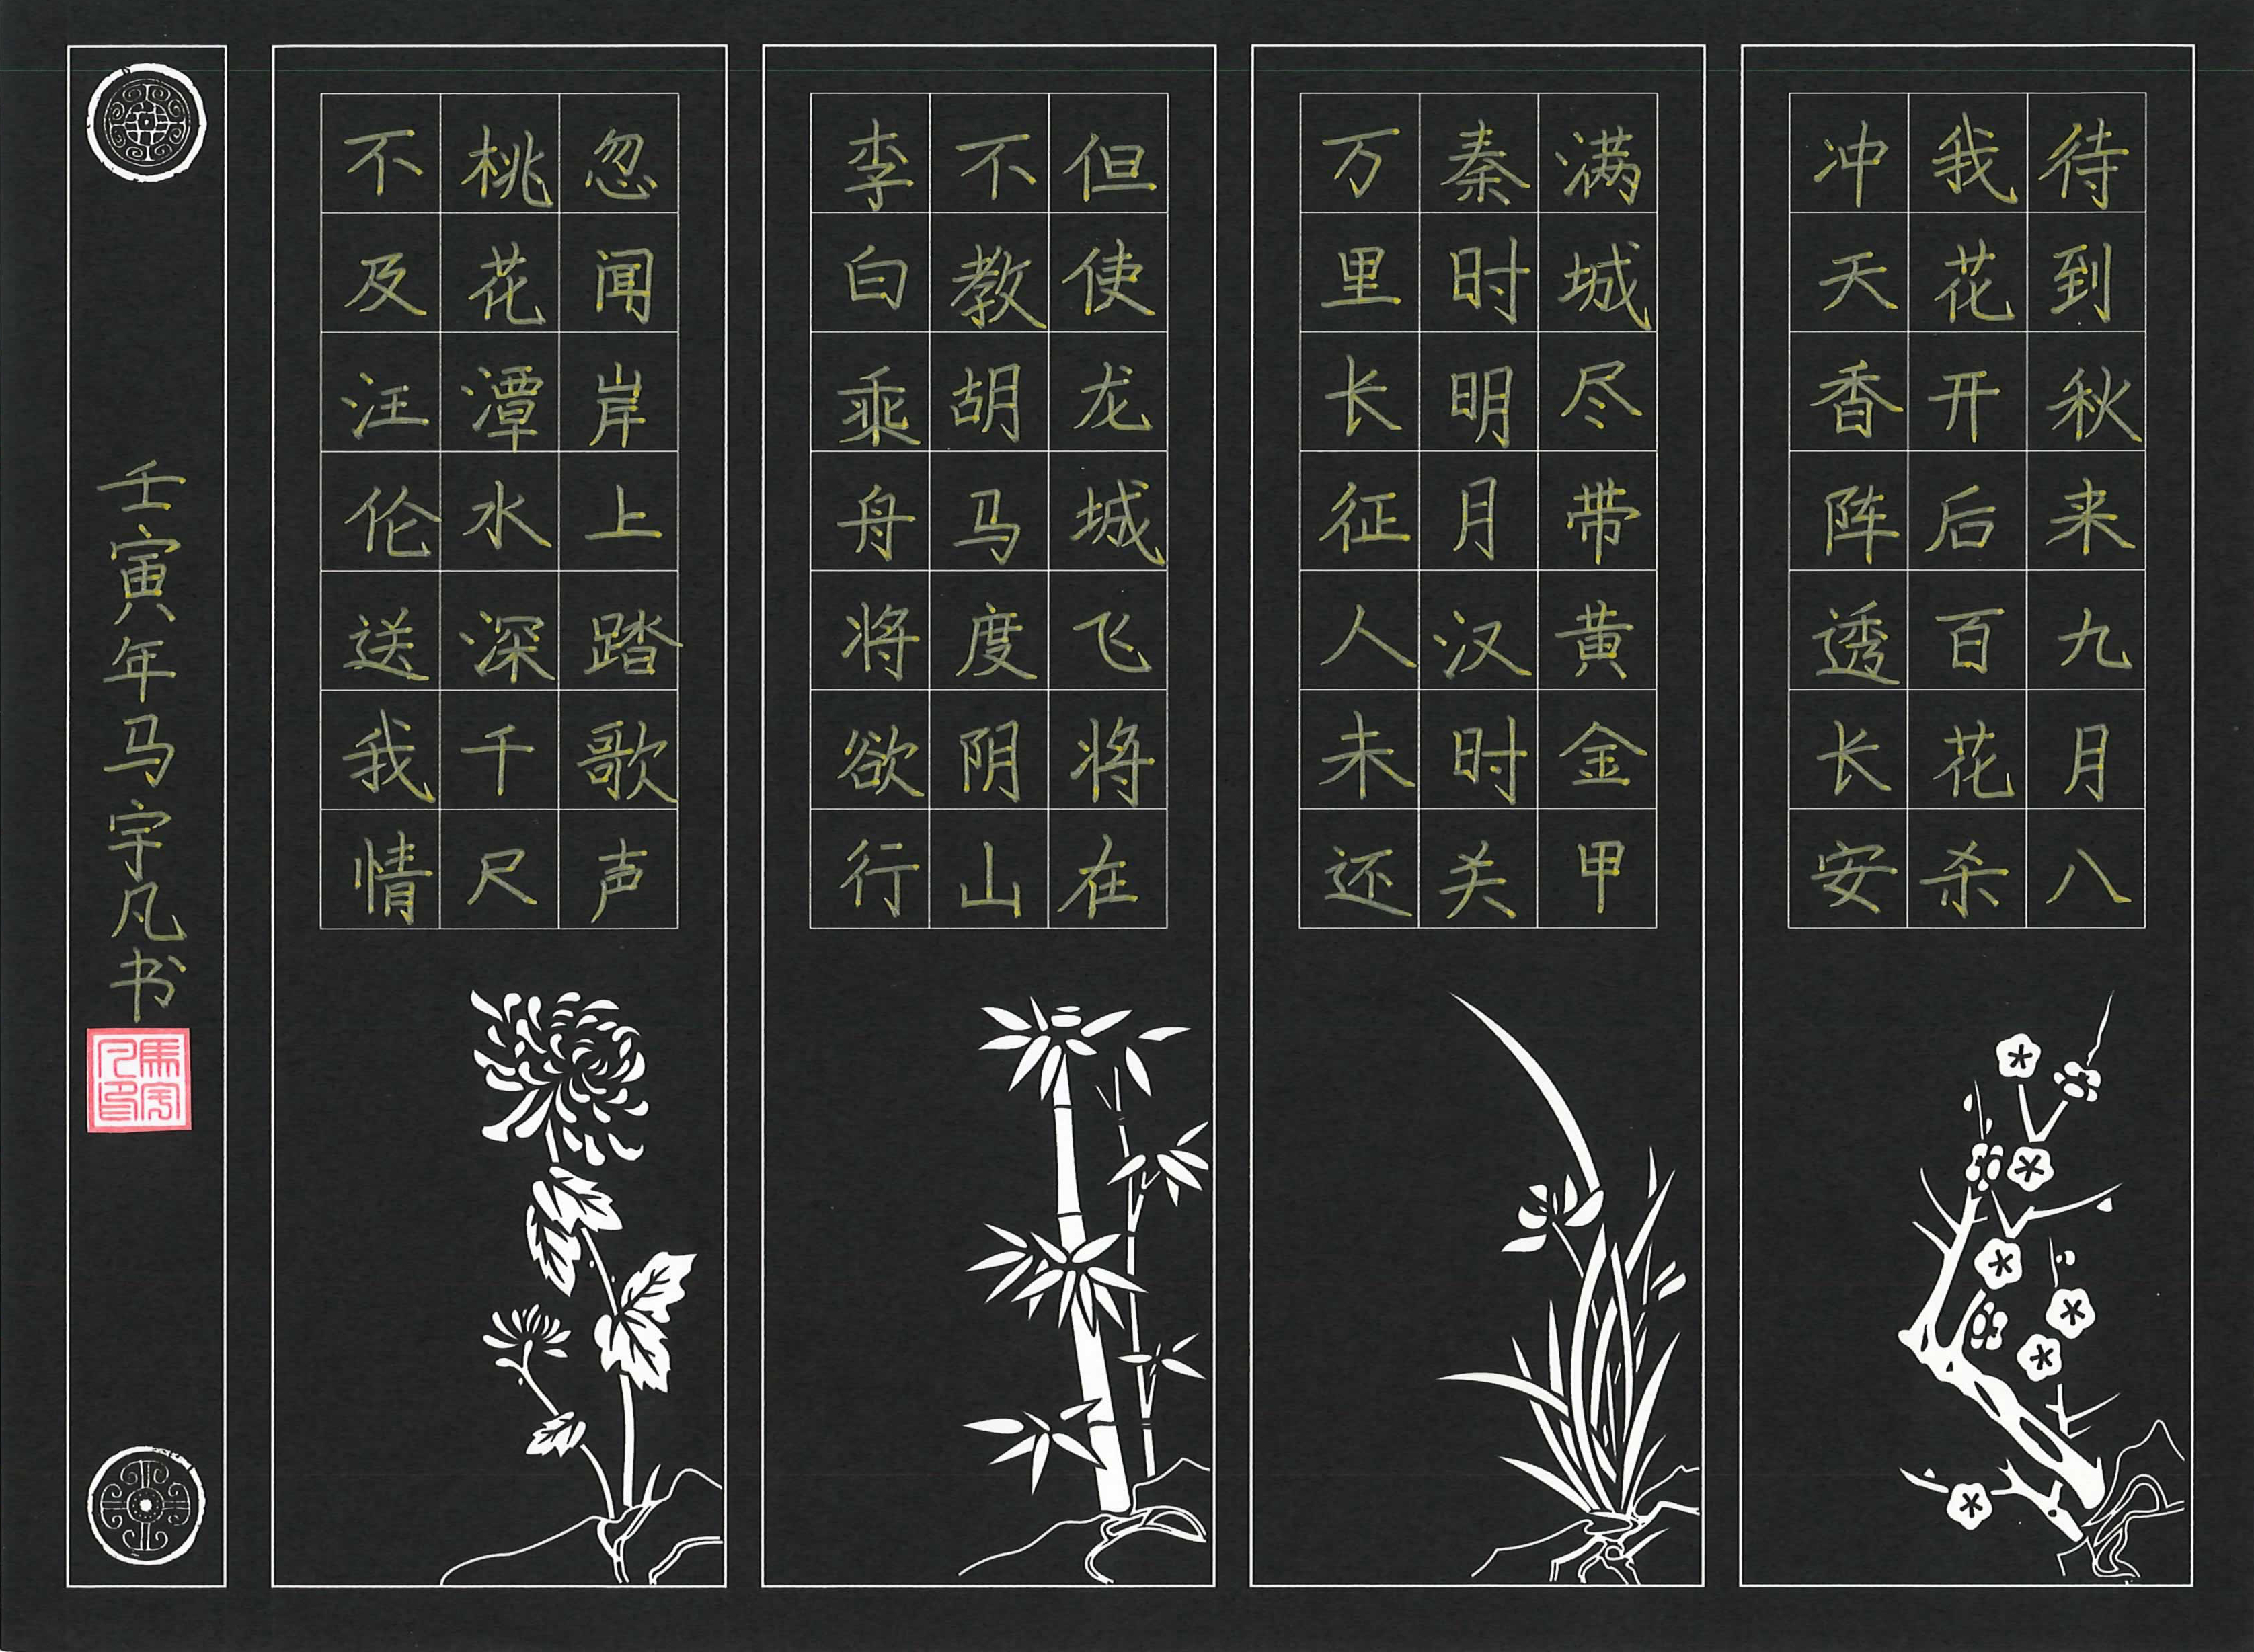 待到秋来九月八
我花开后百花杀
冲天香阵透长安
满城尽带黄金甲
秦时明月汉时关
万里长征人未还
但使龙城飞将在
不教胡马度阴山
李白乘舟将欲行
忽闻岸上踏歌声
桃花潭水深千尺
不及汪伦送我情
壬寅年马宇凡书
馬宇
凡印